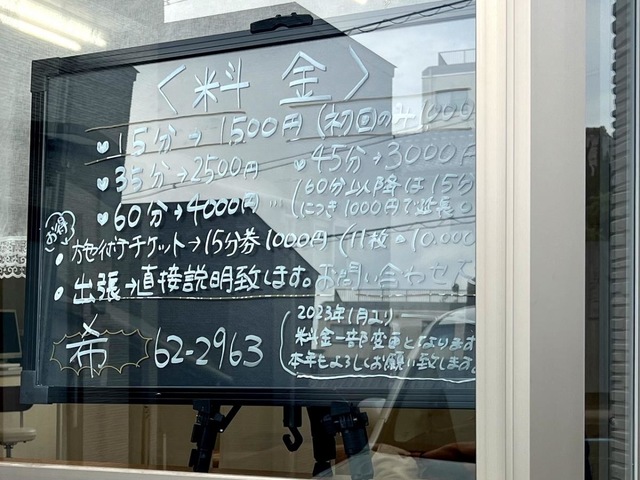 〈料金〉
♥15分→1500円(初回のみ1000
♥35分→2500円 ♥45分→3000円
♥60分→4000円…(60分以降は15分
につき1000円で延長
お得
・施術チケット→15分券1000円(11枚 10.000
・出張→直接説明致します。お問い合わせ
希 62-2963
2023年1月より
料金一部変更となります
本年もよろしくお願い致します。